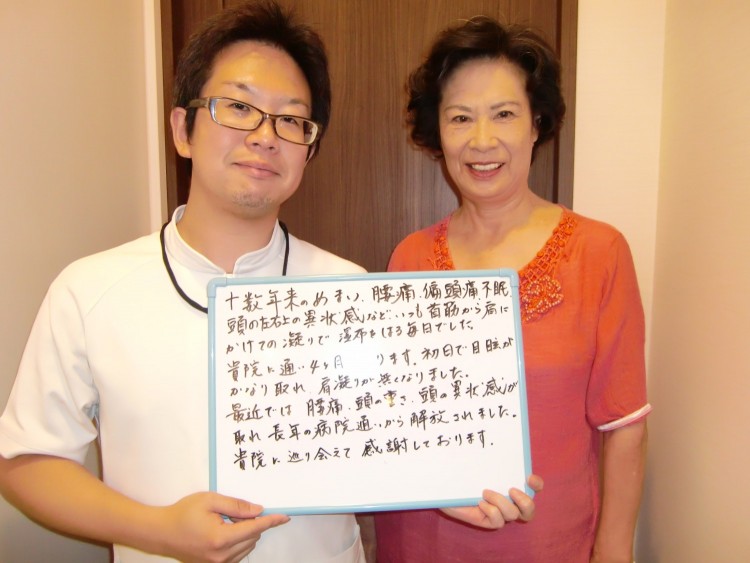 十数年来のめまい、腰痛、偏頭痛、不眠、
頭の左右上の異状感など、いつも首筋から肩に
かけての凝りで湿布をはる毎日でした。
貴院に通い4ヶ月 ります。初日で目眩が
かなり取れ、肩凝りが浅くなりました。
最近では腰痛、頭の重さ、頭の異状感が
取れ長年の病院通いから解放されました。
貴院に巡り会えて感謝しております。